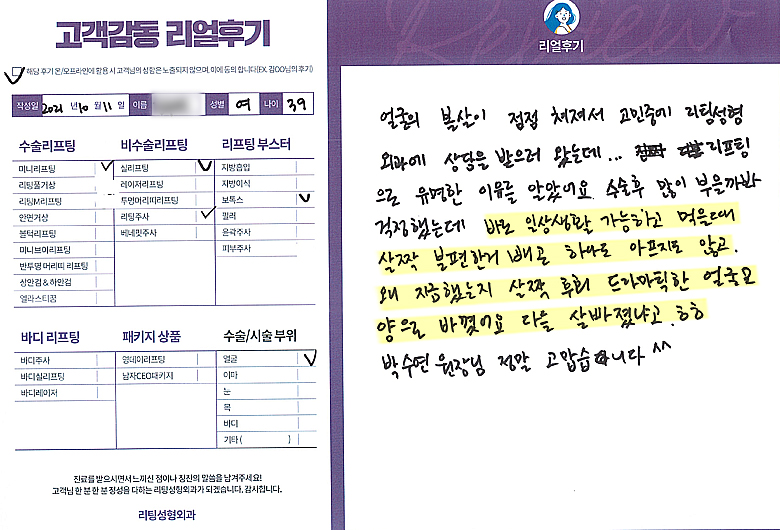 고객감동 리얼후기
해당 후기 온/오프라인에 활용 시 고객님의 성함은 노출되지 않으며, 이에 동의 합니다(EX. 김OO님의 후기)
작성일 2021 년 10 월 11 일 이름 성별 여 나이 39
수술리프팅
미니리프팅
리팅풀기상
리팅M리프팅
안면거상
볼턱리프팅
미니브이리프팅
반투명 머리띠 리프팅
상안검 & 하안검
엘라스티꿈
비수술리프팅
실리프팅
레이저리프팅
투명머리띠리프팅
리팅주사
베네핏주사
리프팅 부스터
지방흡입
지방이식
보톡스
필러
윤곽주사
피부주사
바디 리프팅
바디주사
바디실리프팅
바디레이저
패키지 상품
영데이리프팅
남자CEO패키지
수술/시술 부위
얼굴
이마
눈
목
바디
기타 ( )
진료를 받으시면서 느끼신 점이나 칭찬의 말씀을 남겨주세요!
고객님 한 분 한 분 정성을 다하는 리팅성형외과가 되겠습니다. 감사합니다.
리팅성형외과
리얼후기
얼굴의 볼살이 점점 쳐져서 고민중에 리팅성형
외과에 상담을 받으러 왔는데... 리프팅
으로 유명한 이유를 알았어요. 수술후 많이 부을까봐
걱정했는데 바로 일상생활 가능하고 먹을때
살짝 불편한거 빼곤 하나도 아프지도 않고.
왜 지금했는지 살짝 후회 드라마틱한 얼굴모
양으로 바꼈어요 다들 살빠졌냐고. ㅎㅎ
박수연 원장님 정말 고맙습니다 ^^